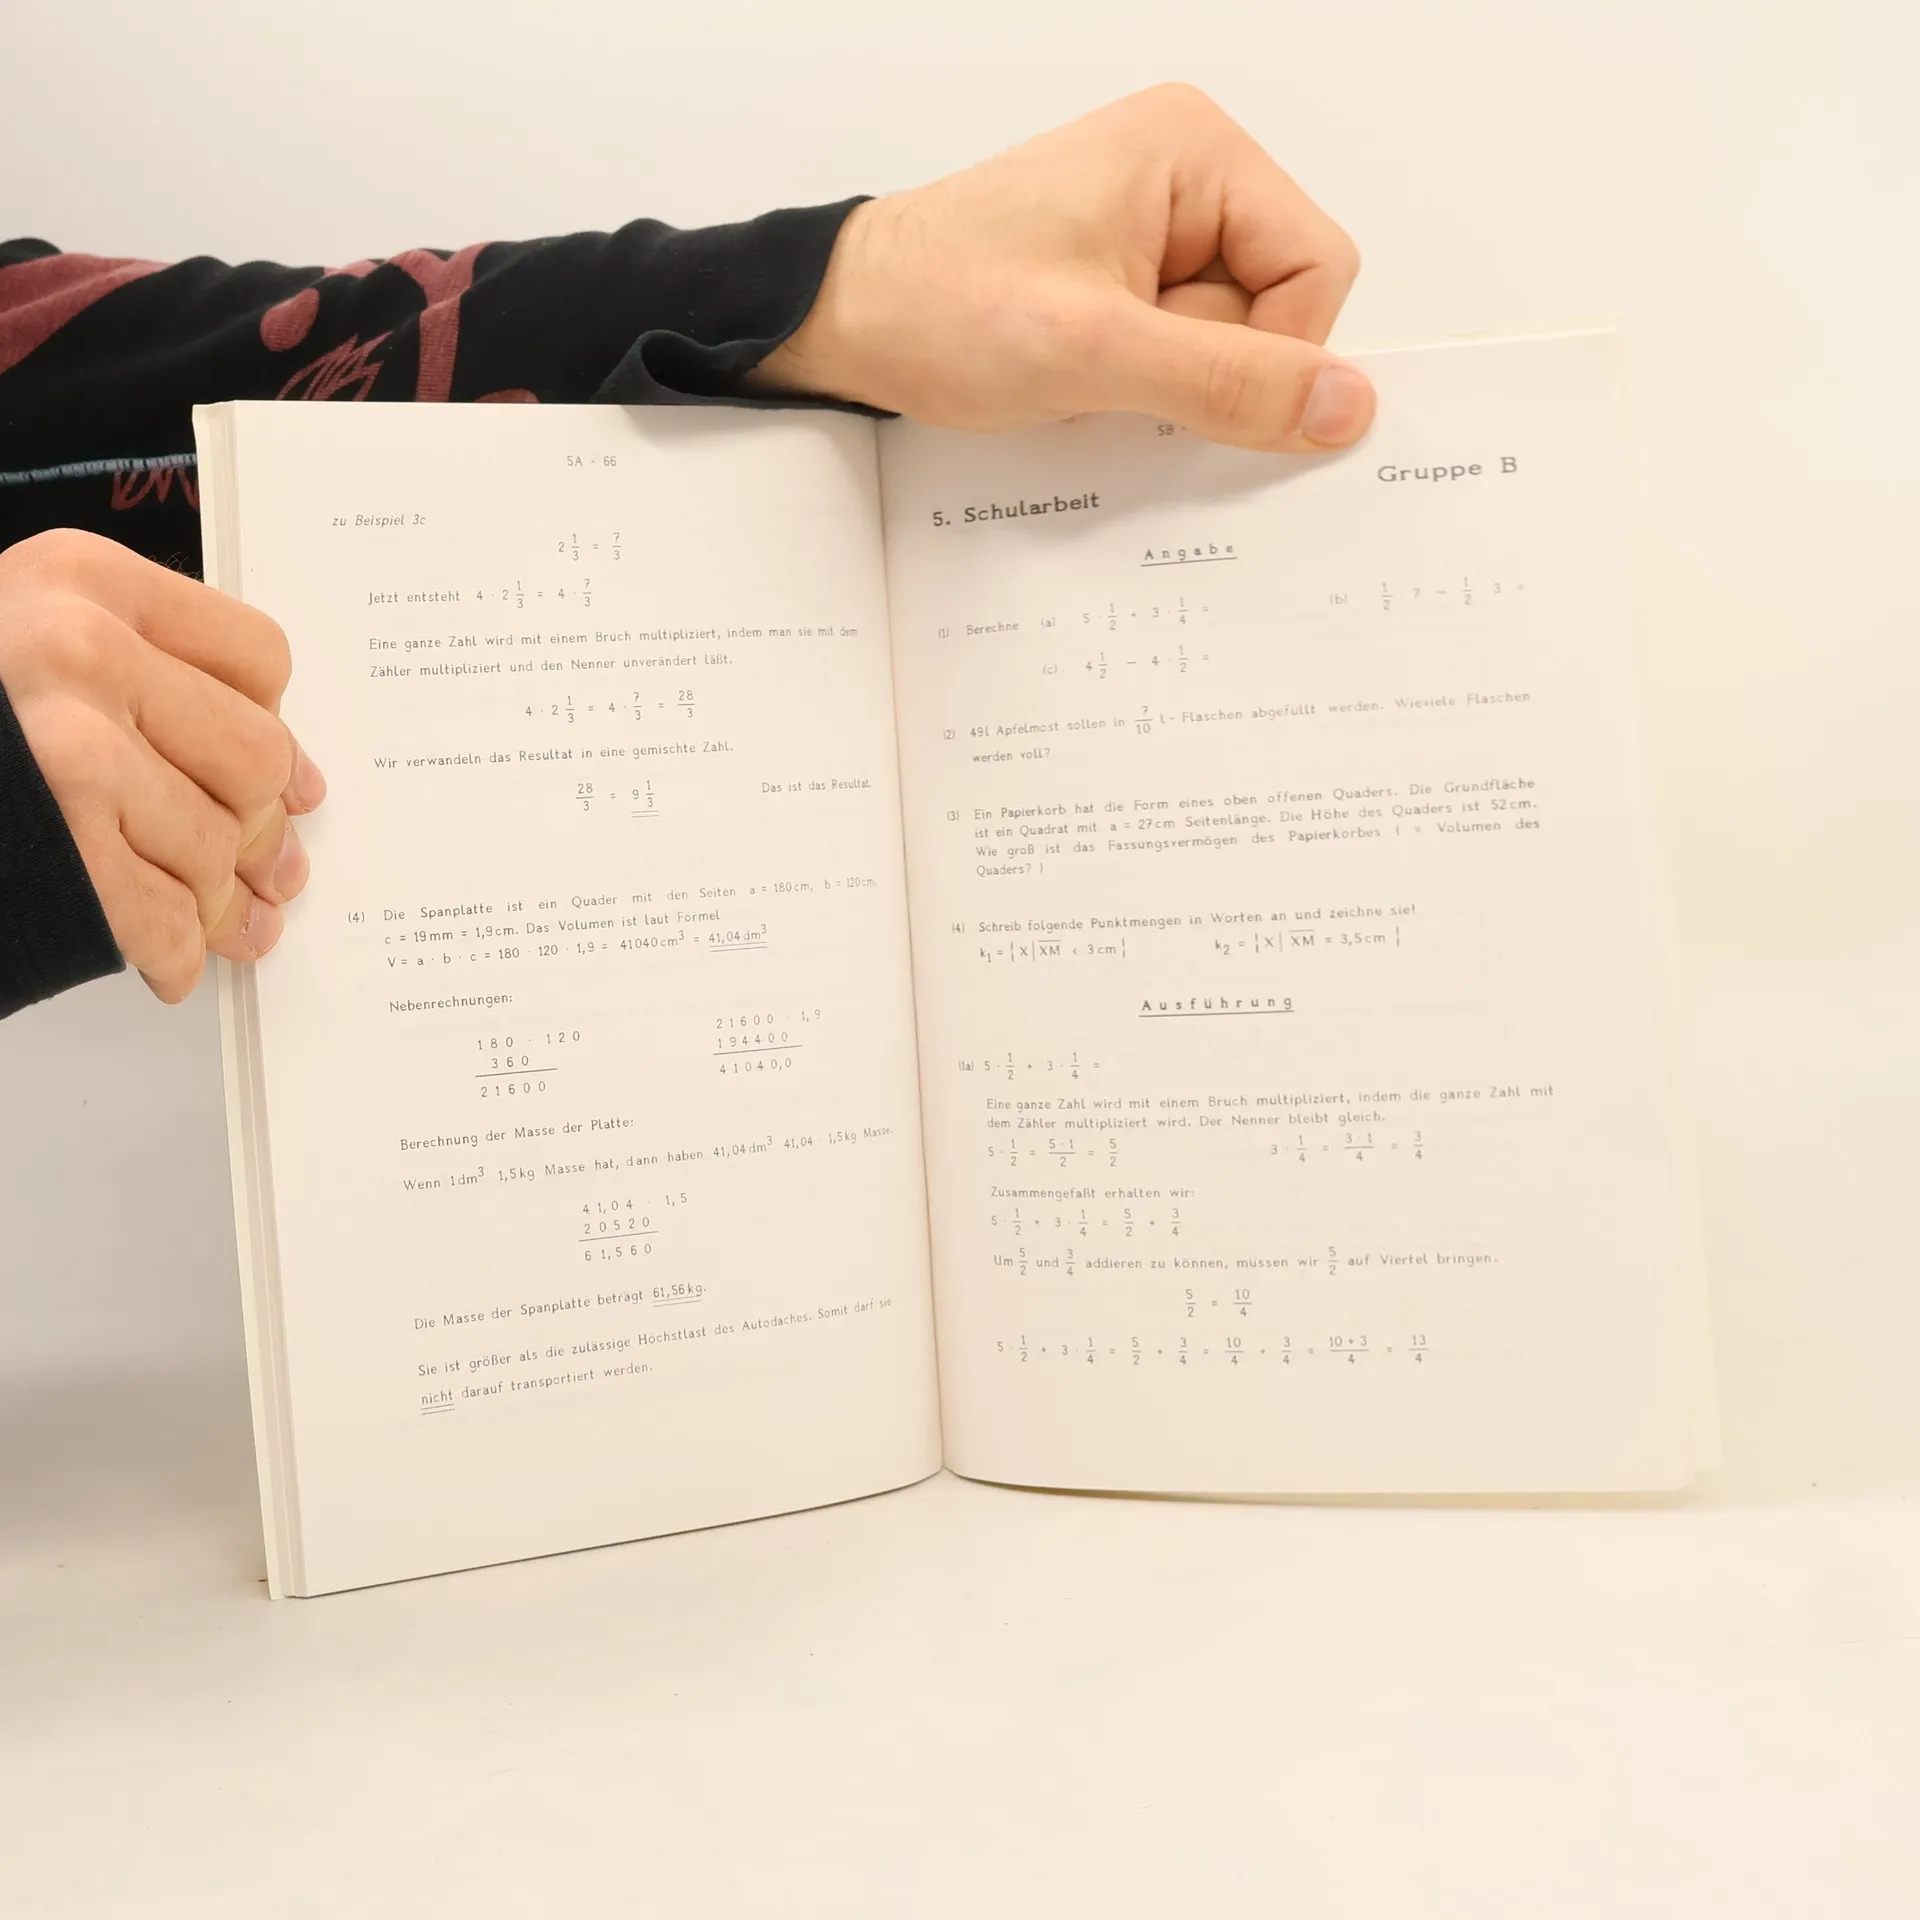 5A - 66
zu Beispiel 3c
2 1/3 = 7/3
Jetzt entsteht 4 · 2 1/3 = 4 · 7/3
Eine ganze Zahl wird mit einem Bruch multipliziert, indem man sie mit dem
Zähler multipliziert und den Nenner unverändert läßt.
4 · 2 1/3 = 4 · 7/3 = 28/3
Wir verwandeln das Resultat in eine gemischte Zahl.
28/3 = 9 1/3 Das ist das Resultat.
(4) Die Spanplatte ist ein Quader mit den Seiten a = 180cm, b = 120cm,
c = 19mm = 1,9cm. Das Volumen ist laut Formel
V = a · b · c = 180 · 120 · 1,9 = 41040cm³ = 41,04dm³
Nebenrechnungen:
180 · 120
360
21600
21600 · 1,9
194400
41040,0
Berechnung der Masse der Platte:
Wenn 1dm³ 1,5kg Masse hat, dann haben 41,04dm³ 41,04 · 1,5kg Masse.
41,04 · 1,5
20520
61,560
Die Masse der Spanplatte beträgt 61,56kg.
Sie ist größer als die zulässige Höchstlast des Autodaches. Somit darf sie
nicht darauf transportiert werden.
5B -
Gruppe B
5. Schularbeit
Angabe
(1) Berechne (a) 5 · 1/2 + 3 · 1/4 = (b) 1/2 · 7 - 1/2 · 3 =
(c) 4 1/2 - 4 · 1/2 =
(2) 49l Apfelmost sollen in 7/10 l - Flaschen abgefüllt werden. Wieviele Flaschen
werden voll?
(3) Ein Papierkorb hat die Form eines oben offenen Quaders. Die Grundfläche
ist ein Quadrat mit a = 27cm Seitenlänge. Die Höhe des Quaders ist 52cm.
Wie groß ist das Fassungsvermögen des Papierkorbes ( = Volumen des
Quaders? )
(4) Schreib folgende Punktmengen in Worten an und zeichne sie!
k₁ = {X | X̅M̅ < 3cm} k₂ = {X | X̅M̅ = 3,5cm}
Ausführung
(1a) 5 · 1/2 + 3 · 1/4 =
Eine ganze Zahl wird mit einem Bruch multipliziert, indem die ganze Zahl mit
dem Zähler multipliziert wird. Der Nenner bleibt gleich.
5 · 1/2 = 5 · 1/2 = 5/2 3 · 1/4 = 3 · 1/4 = 3/4
Zusammengefaßt erhalten wir:
5 · 1/2 + 3 · 1/4 = 5/2 + 3/4
Um 5/2 und 3/4 addieren zu können, müssen wir 5/2 auf Viertel bringen.
5/2 = 10/4
5 · 1/2 + 3 · 1/4 = 5/2 + 3/4 = 10/4 + 3/4 = 10 + 3/4 = 13/4